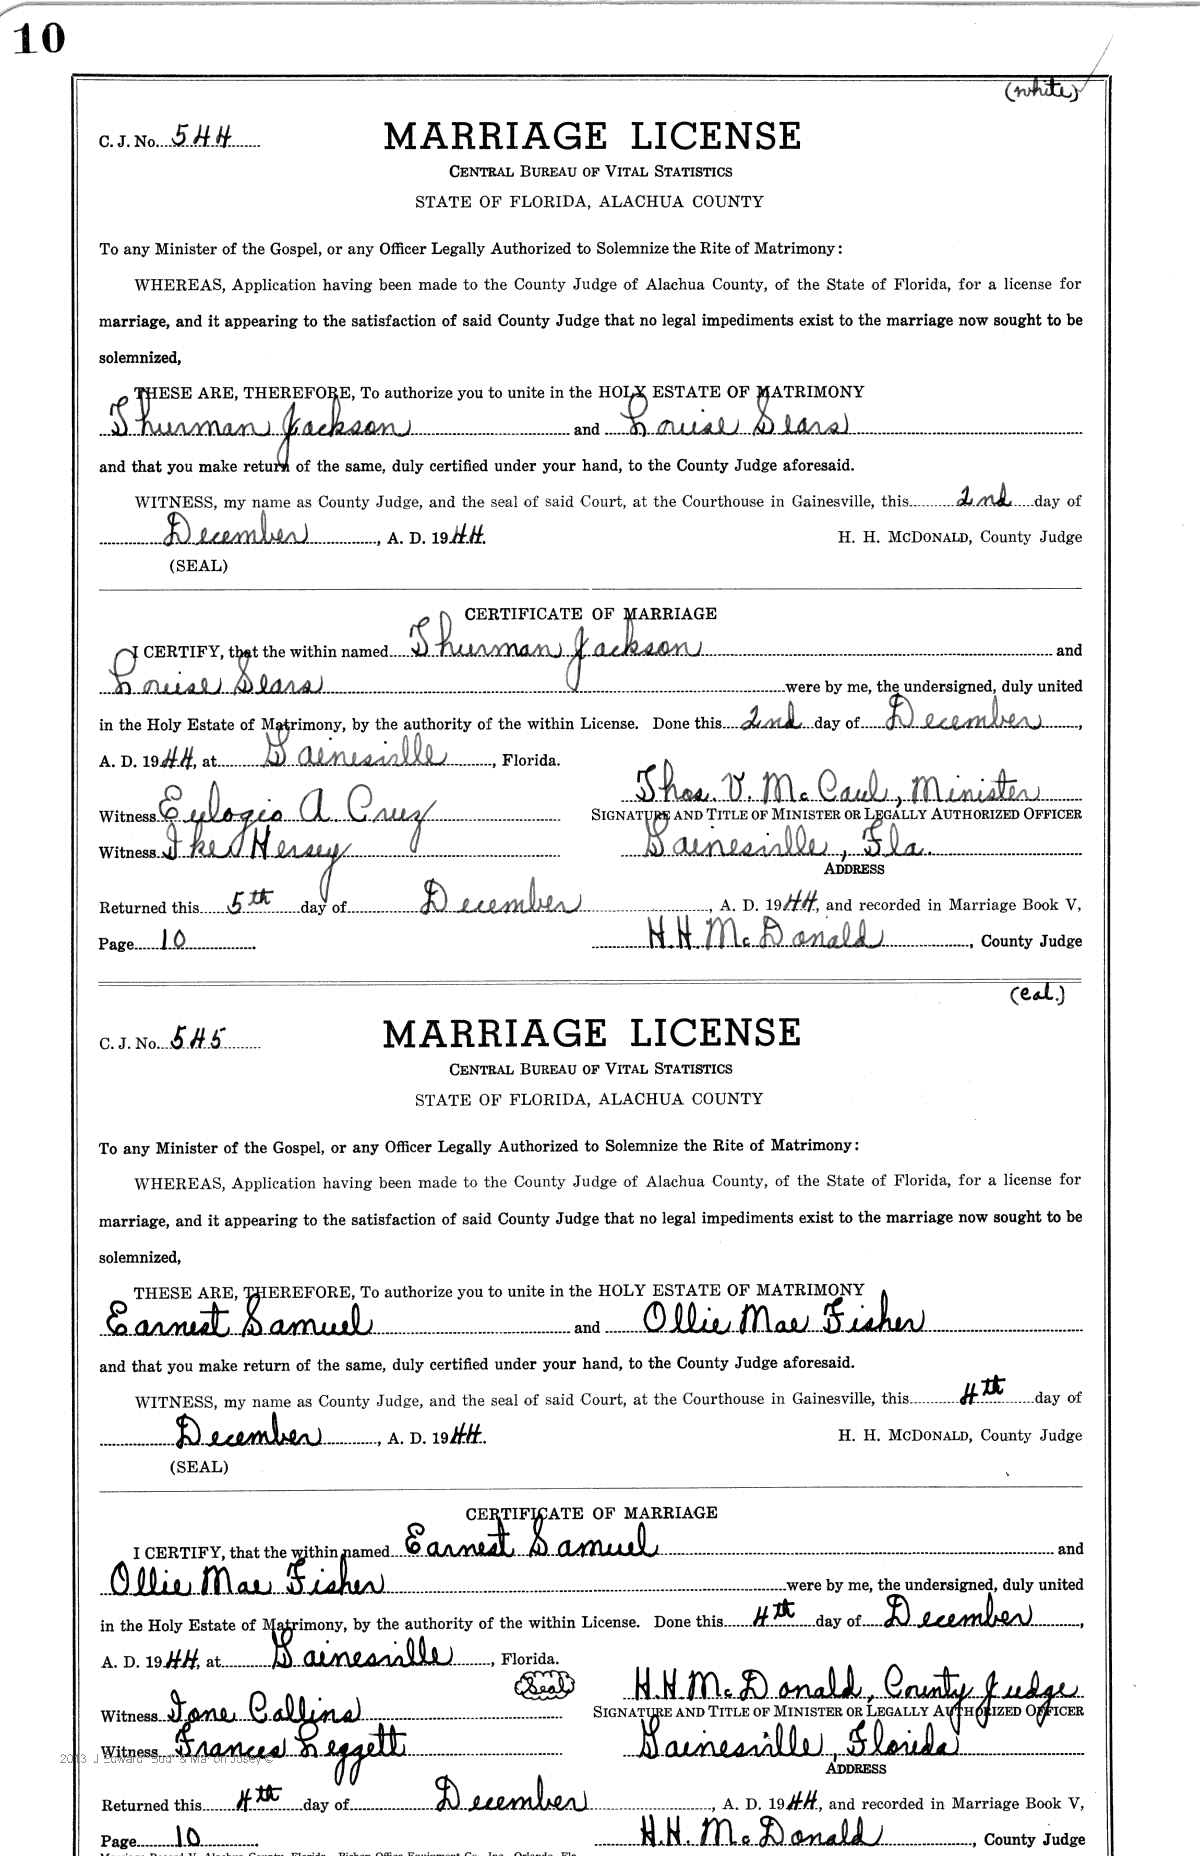 10
(white)
C. J. No. 544 MARRIAGE LICENSE
CENTRAL BUREAU OF VITAL STATISTICS
STATE OF FLORIDA, ALACHUA COUNTY
To any Minister of the Gospel, or any Officer Legally Authorized to Solemnize the Rite of Matrimony:
WHEREAS, Application having been made to the County Judge of Alachua County, of the State of Florida, for a license for
marriage, and it appearing to the satisfaction of said County Judge that no legal impediments exist to the marriage now sought to be
solemnized,
THESE ARE, THEREFORE, To authorize you to unite in the HOLY ESTATE OF MATRIMONY
Thurman Jackson and Louise Sears
and that you make return of the same, duly certified under your hand, to the County Judge aforesaid.
WITNESS, my name as County Judge, and the seal of said Court, at the Courthouse in Gainesville, this 2nd day of
December, A. D. 1944. H. H. MCDONALD, County Judge
(SEAL)
CERTIFICATE OF MARRIAGE
I CERTIFY, that the within named Thurman Jackson and
Louise Sears were by me, the undersigned, duly united
in the Holy Estate of Matrimony, by the authority of the within License. Done this 2nd day of December,
A. D. 1944, at Gainesville, Florida.
Thos. V. McCaul, Minister
Witness Eulogio A Cruz SIGNATURE AND TITLE OF MINISTER OR LEGALLY AUTHORIZED OFFICER
Witness Ike Hersey Gainesville, Fla.
ADDRESS
Returned this 5th day of December, A. D. 1944, and recorded in Marriage Book V,
Page 10 H. H. McDonald, County Judge
(Col.)
C. J. No. 545 MARRIAGE LICENSE
CENTRAL BUREAU OF VITAL STATISTICS
STATE OF FLORIDA, ALACHUA COUNTY
To any Minister of the Gospel, or any Officer Legally Authorized to Solemnize the Rite of Matrimony:
WHEREAS, Application having been made to the County Judge of Alachua County, of the State of Florida, for a license for
marriage, and it appearing to the satisfaction of said County Judge that no legal impediments exist to the marriage now sought to be
solemnized,
THESE ARE, THEREFORE, To authorize you to unite in the HOLY ESTATE OF MATRIMONY
Earnest Samuel and Ollie Mae Fisher
and that you make return of the same, duly certified under your hand, to the County Judge aforesaid.
WITNESS, my name as County Judge, and the seal of said Court, at the Courthouse in Gainesville, this 4th day of
December, A. D. 1944. H. H. MCDONALD, County Judge
(SEAL)
CERTIFICATE OF MARRIAGE
I CERTIFY, that the within named Earnest Samuel and
Ollie Mae Fisher were by me, the undersigned, duly united
in the Holy Estate of Matrimony, by the authority of the within License. Done this 4th day of December,
A. D. 1944, at Gainesville, Florida.
Seal H. H. McDonald, County Judge
Witness Ione Collins SIGNATURE AND TITLE OF MINISTER OR LEGALLY AUTHORIZED OFFICER
Witness Frances Leggett Gainesville, Florida
ADDRESS
Returned this 4th day of December, A. D. 1944, and recorded in Marriage Book V,
Page 10 H. H. McDonald, County Judge